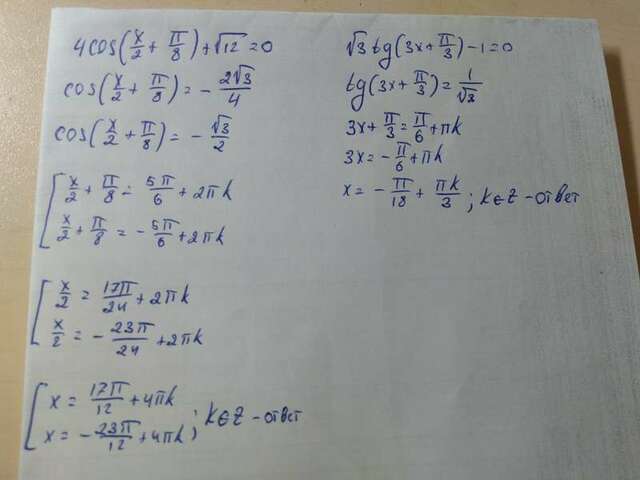 4cos(x/2 + π/8) + √12 = 0
cos(x/2 + π/8) = - 2√3/4
cos(x/2 + π/8) = - √3/2
[ x/2 + π/8 = 5π/6 + 2πk
x/2 + π/8 = - 5π/6 + 2πk
[ x/2 = 17π/24 + 2πk
x/2 = - 23π/24 + 2πk
[ x = 17π/12 + 4πk
x = - 23π/12 + 4πk ; k∈Z - ответ
√3 tg(3x + π/3) - 1 = 0
tg(3x + π/3) = 1/√3
3x + π/3 = π/6 + πk
3x = - π/6 + πk
x = - π/18 + πk/3 ; k∈Z - ответ